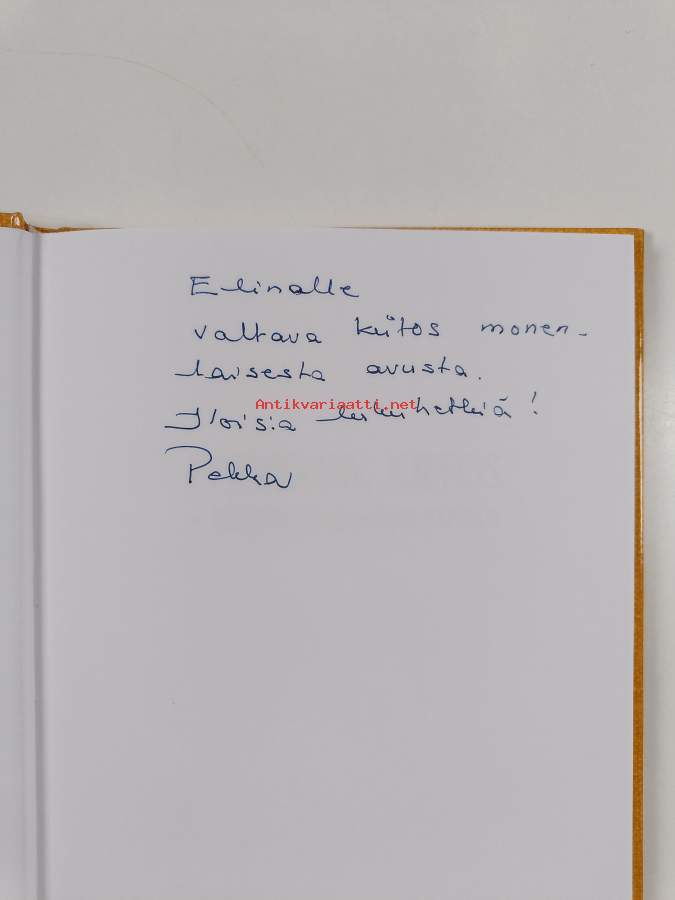 Elinalle
valtava kiitos monen-
laisesta avusta.
Antikvariaatti.net
Iloisia lukuhetkiä!
Pekka